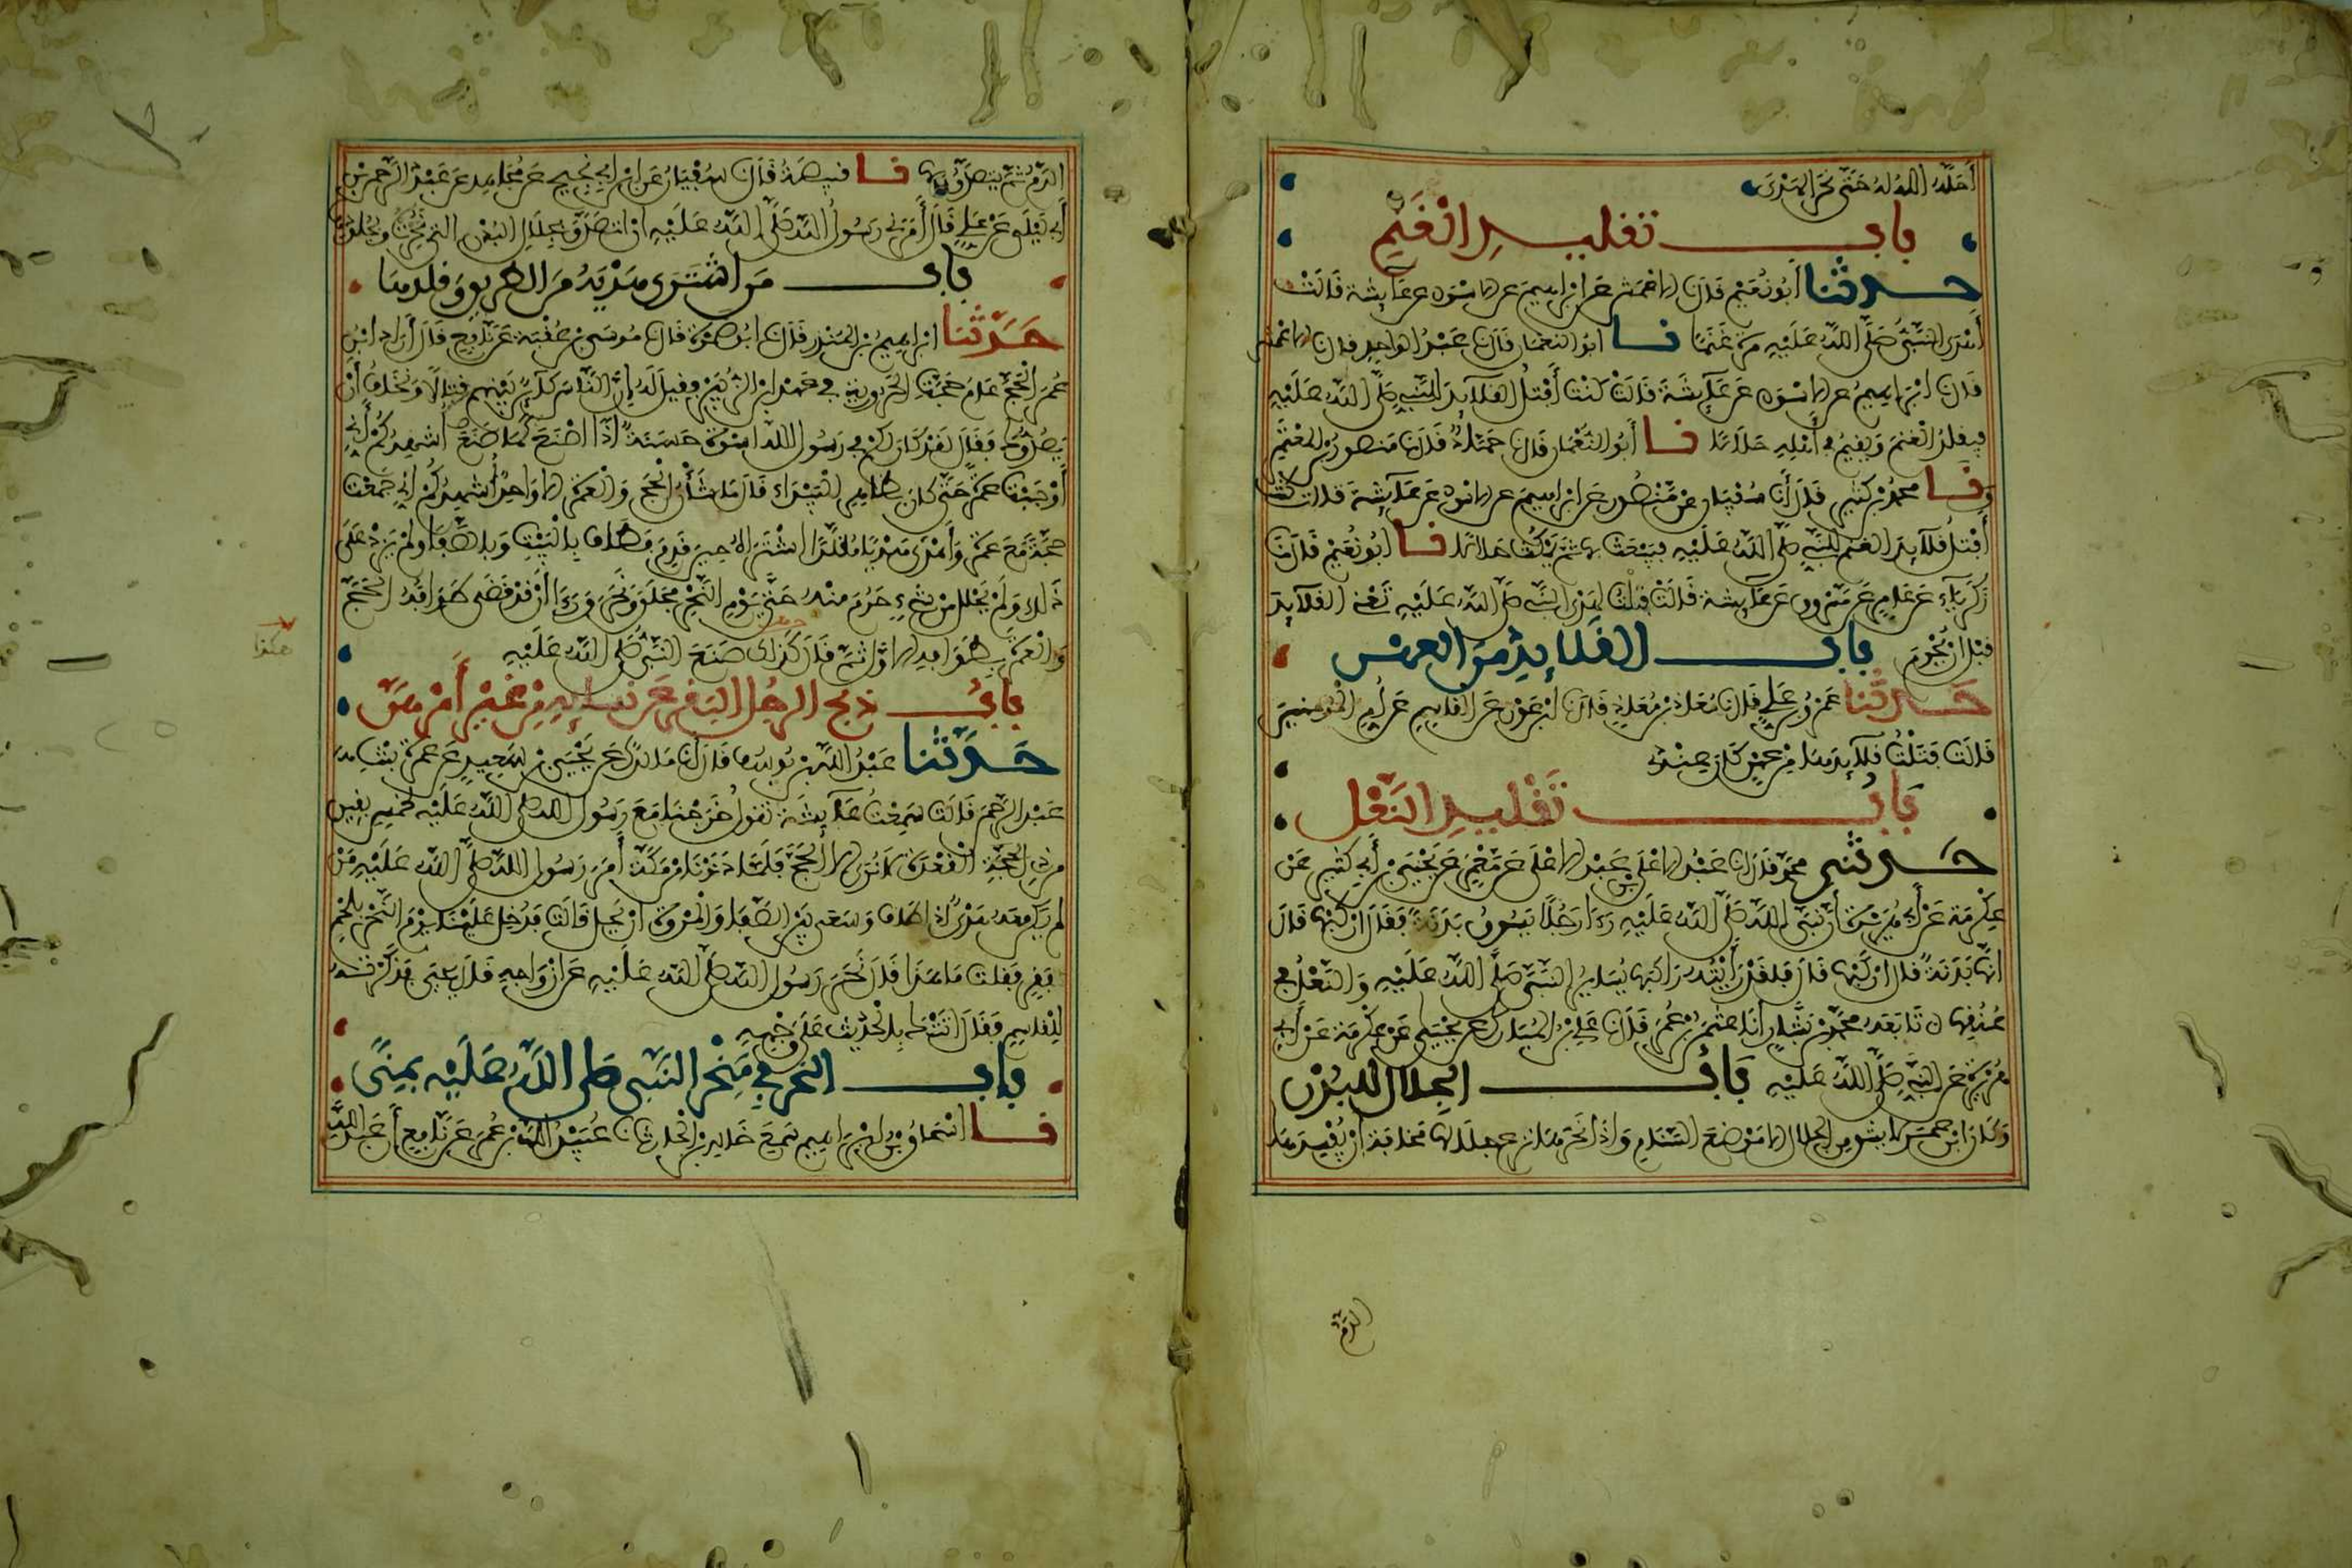 أحله الله له حتى نحر الهدي
باب تقليد الغنم
حدثنا أبو نعيم قال نا الاعمش عن ابراهيم عن الاسود عن عائشة قالت
أهدى النبي صلى الله عليه مرة غنما نا ابو النعمان قال نا عبد الواحد قال نا الاعمش
قال نا ابراهيم عن الاسود عن عائشة قالت كنت أفتل القلائد للنبي صلى الله عليه
فيقلد الغنم ويقيم في أهله حلالا نا أبو النعمان قال نا حماد قال نا منصور بن المعتمر
ونا محمد بن كثير قال أنا سفيان عن منصور عن ابراهيم عن الاسود عن عائشة قالت كنت
أفتل قلائد الغنم للنبي صلى الله عليه فيبعث بها ثم يمكث حلالا نا ابو نعيم قال نا
زكرياء عن عامر عن مسروق عن عائشة قالت فتلت لهدي النبي صلى الله عليه تعني القلائد
قبل ان يحرم باب القلائد من العهن
حدثنا عمرو بن علي قال نا معاذ بن معاذ قال نا ابن عون عن القاسم عن أم المومنين
قالت فتلت قلائدها من عهن كان عندي
باب تقليد النعل
حدثني محمد قال انا عبد الاعلى بن عبد الاعلى عن معمر عن يحيى بن أبي كثير عن
عكرمة عن أبي هريرة أن نبي الله صلى الله عليه رءا رجلا يسوق بدنة فقال اركبها قال
انها بدنة قال اركبها قال فلقد رأيته راكبها يساير النبي صلى الله عليه والنعل في
عنقها تابعه محمد بن بشار انا عثمن بن عمر قال نا علي بن المبارك عن يحيى عن عكرمة عن أبي
هريرة عن النبي صلى الله عليه باب الجلال للبدن
وكان ابن عمر لا يشق من الجلال الا موضع السنام واذا نحرها نزع جلالها مخافة أن يفسدها
الدم
الدم ثم يتصدق بها نا قبيصة قال نا سفيان عن ابن ابي نجيح عن مجاهد عن عبد الرحمن بن
أبي ليلى عن علي قال أمرني رسول الله صلى الله عليه ان اتصدق بجلال البدن التي نحرت وبجلودها
باب من اشترى هديه من الطريق وقلدها
حدثنا ابراهيم بن المنذر قال نا ابو ضمرة قال نا موسى بن عقبة عن نافع قال أراد ابن
عمر الحج عام حجة الحرورية في عهد ابن الزبير فقيل له إن الناس كائن بينهم قتالا ونخاف أن
يصدوك فقال لقد كان لكم في رسول الله اسوة حسنة إذا اصنع كما صنع أشهدكم أني
أوجبت عمرة حتى كان بظاهر البيداء قال ما شأن الحج والعمرة الا واحد أشهدكم اني جمعت
حجة مع عمرة وأهدى هديا مقلدا اشتراه حين قدم فطاف بالبيت وبالصفا ولم يزد على
ذلك ولم يحلل من شيء حرم منه حتى يوم النحر فحلق ونحر ورءا أن قد قضى طوافه للحج
والعمرة بطوافه الاول ثم قال كذلك صنع النبي صلى الله عليه
هكذا
باب ذبح الرجل البقر عن نسائه من غير أمرهن
حدثنا عبد الله بن يوسف قال أنا مالك عن يحيى بن سعيد عن عمرة بنت
عبد الرحمن قالت سمعت عائشة تقول خرجنا مع رسول الله صلى الله عليه لخمس بقين
من ذي القعدة لا نرى الا الحج فلما دنونا من مكة أمر رسول الله صلى الله عليه من
لم يكن معه هدي اذا طاف وسعى بين الصفا والمروة ان يحل قالت فدخل علينا يوم النحر بلحم
بقر فقلت ما هذا قال نحر رسول الله صلى الله عليه عن ازواجه قال يحيى فذكرته
للقاسم فقال اتتك بالحديث على وجهه
باب النحر في منحر النبي صلى الله عليه بمنى
نا اسحاق بن ابراهيم سمع خالد بن الحارث نا عبيد الله بن عمر عن نافع أن عبد الله